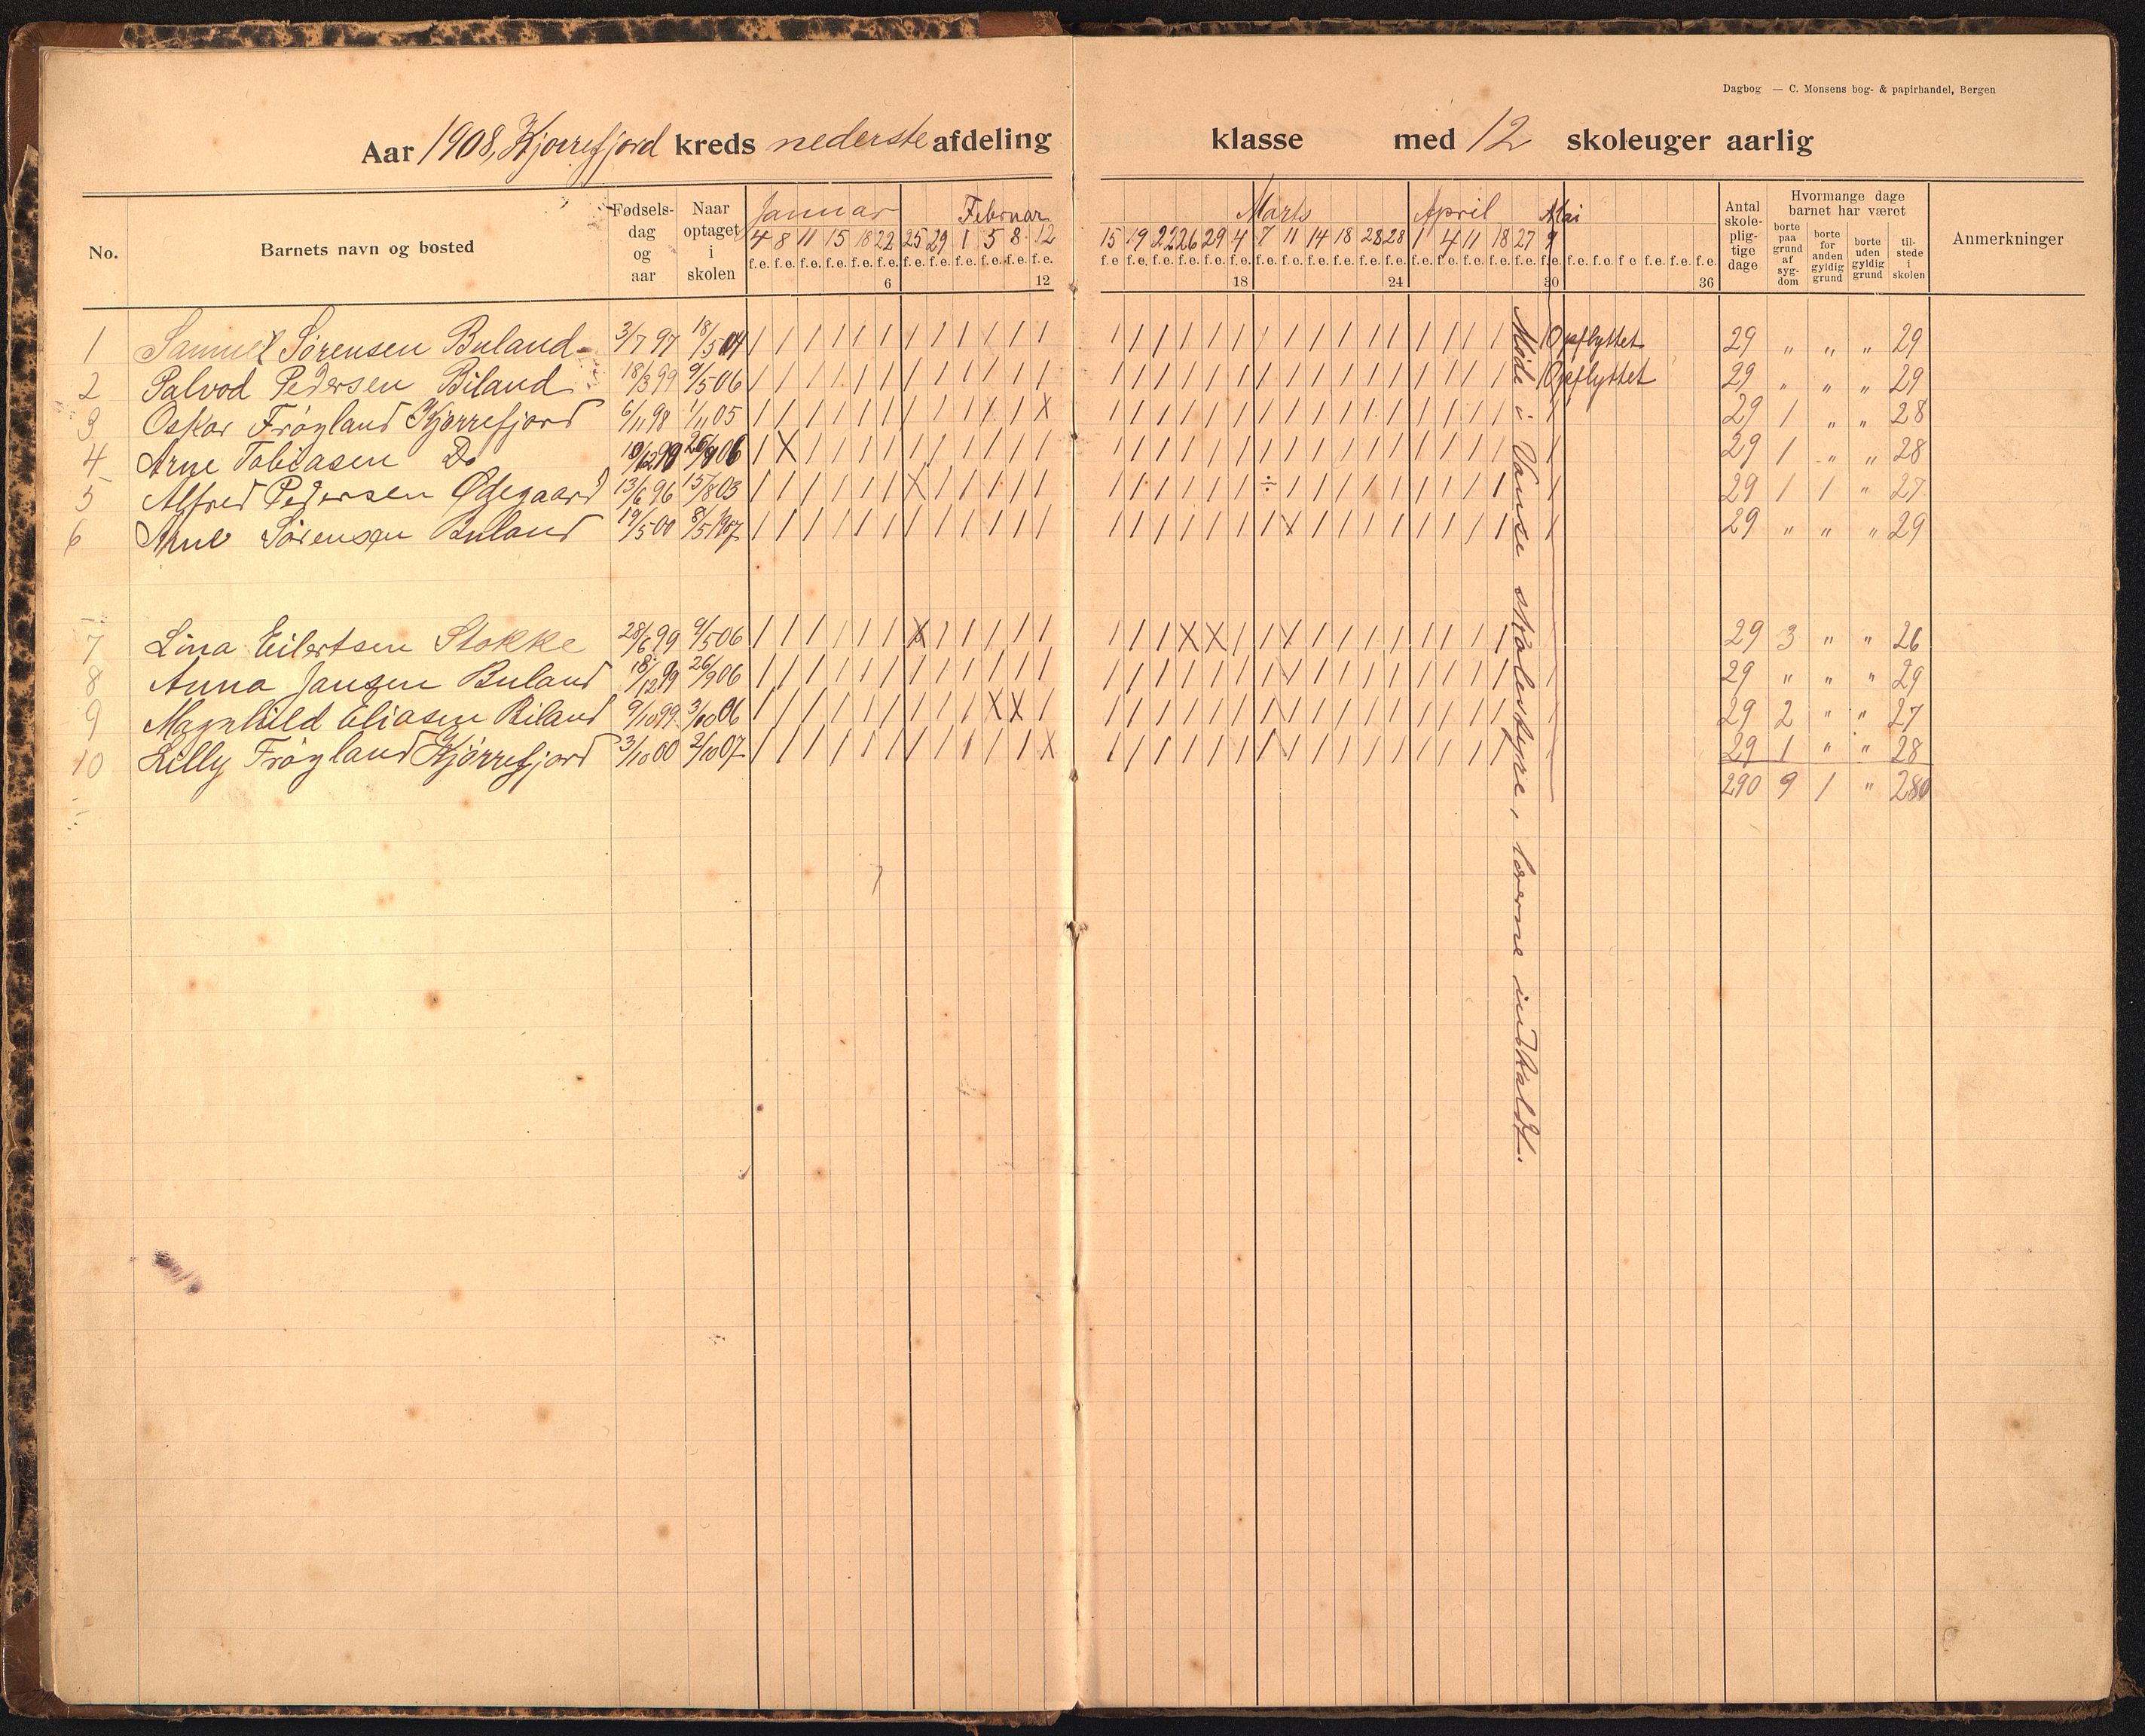 Dagbog — C. Monsens bog- & papirhandel, Bergen
Aar 1908, Kjørrefjord kreds nederste afdeling klasse med 12 skoleuger aarlig
No. Barnets navn og bosted Fødsels-dag og aar Naar optaget i skolen Januar Februar Marts April Mai Antal skole-plig-tige dage Hvormange dage barnet har været Anmerkninger
borte paa grund af syg-dom borte for anden gyldig grund borte uden gyldig grund til-stede i skolen
4 8 11 15 18 22 25 29 1 5 8 12 15 19 22 26 29 4 7 11 14 18 28 28 1 4 11 18 27 9
f.e. f.e. f.e. f.e. f.e. f.e. f.e. f.e. f.e. f.e. f.e. f.e. f.e f.e. f.e. f.e. f.e. f.e. f.e. f.e. f.e. f.e. f.e. f.e. f.e. f.e. f.e. f.e. f.e. f.e. f.e. f.e. f e f.e. f.e. f.e.
6 12 18 24 30 36
1 Samuel Sørensen Buland 3/7 97 18/5 04 / / / / / / / / / / / / / / / / / / / / / / / / / / / / / Opflyttet 29 " " " 29
2 Salvod Pedersen Biland 18/8 99 9/5 06 / / / / / / / / / / / / / / / / / / / / / / / / / / / / / Opflyttet 29 " " " 29
3 Oskar Frøyland Kjørrefjord 6/11 98 1/11 05 / / / / / / / / / / / X / / / / / / / / / / / / / / / / / 29 1 " " 28
4 Arne Tobiasen Do 26/9 06 / X / / / / / / / / / / / / / / / / / / / / / / / / / / / 29 1 " " 28
5 Alfred Pedersen Ødegaard 13/6 96 15/8 03 / / / / / / X / / / / / / / / / / / ÷ / / / / / / / / / / 29 1 1 " 27
6 Arne Sørensen Buland 19/5 00 8/5 1907 / / / / / / / / / / / / / / / / / / / / / / / / / / / / / 29 " " " 29
7 Lina Eilertsen Stokke 28/6 99 9/5 06 / / / / / / X / / / / / / / / X X / / / / / / / / / / / / 29 3 " " 26
8 Anna Jansen Buland 18/12 99 26/9 06 / / / / / / / / / / / / / / / / / / / / / / / / / / / / / 29 " " " 29
9 Magnhild Eliasen Biland 9/10 99 3/10 06 / / / / / / / / / X X / / / / / / / / / / / / / / / / / / 29 2 " " 27
10 Lilly Frøyland Kjørrefjord 3/10 00 2/10 07 / / / / / / / / / / / X / / / / / / / / / / / / / / / / / 29 1 " " 28
290 9 1 " 280
Møde i Vanse skolestyre, lærerne indkaldt.